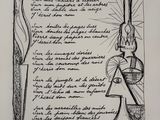 Sur mon pupitre et les arbres
Sur le sable sur la neige
J'écris ton nom
Sur toutes les pages lues
Sur toutes les pages blanches
Pierre sang papier ou cendre
J'écris ton nom
Sur les images dorées
Sur les armes des guerriers
Sur la couronne des rois
J'écris ton nom
Sur la jungle et le désert
Sur les nids sur les genêts
Sur l'écho de mon enfance
J'écris ton nom
Sur les merveilles des nuits
Sur le pain blanc des journées